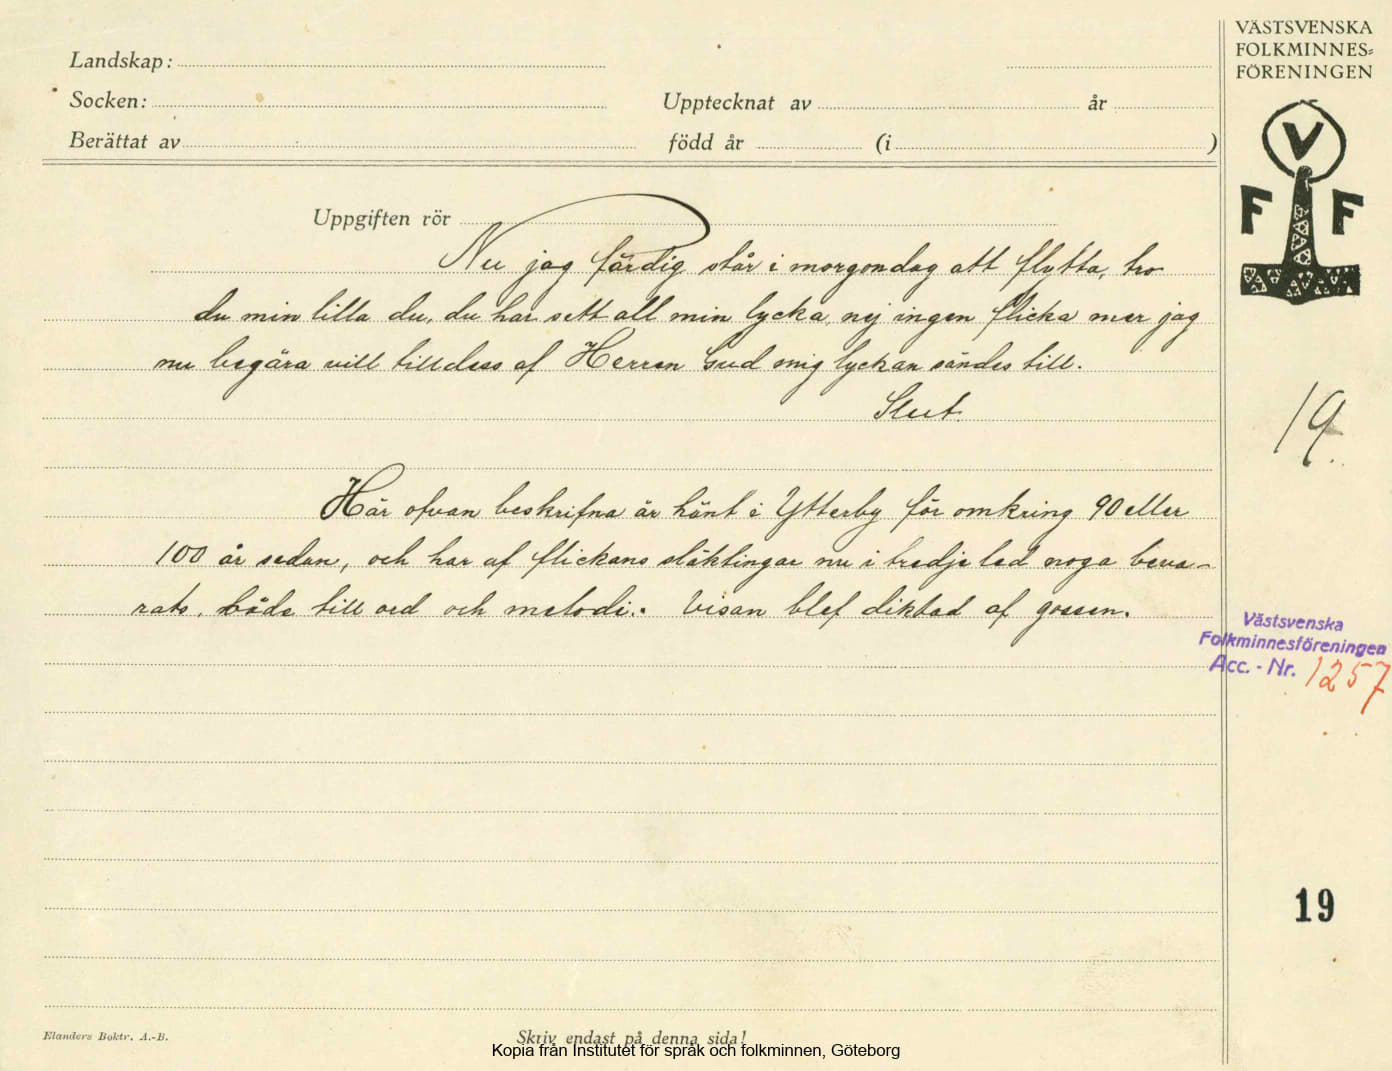 VÄSTSVENSKA
FOLKMINNES=
FÖRENINGEN
V
F F
Landskap:
Socken:
Upptecknat av år
Berättat av
född år (i )
Uppgiften rör
Nu jag färdig står i morgondag att flytta, tro
du min lilla du, du har sett all min lycka, nej ingen flicka mer jag
nu begära vill tilldess af Herren Gud mig lyckan sändes till.
Slut.
19.
Här ofvan beskrifna är hänt i Ytterby för omkring 90 eller
100 år sedan, och har af flickans släktingar nu i tredje led noga beva-
rats, både till ord och melodi. Visan blef diktad af gossen.
Västsvenska
Folkminnesföreningen
Acc. - Nr. 1257
19
Elanders Boktr. A.-B.
Skriv endast på denna sida!
Kopia från Institutet för språk och folkminnen, Göteborg